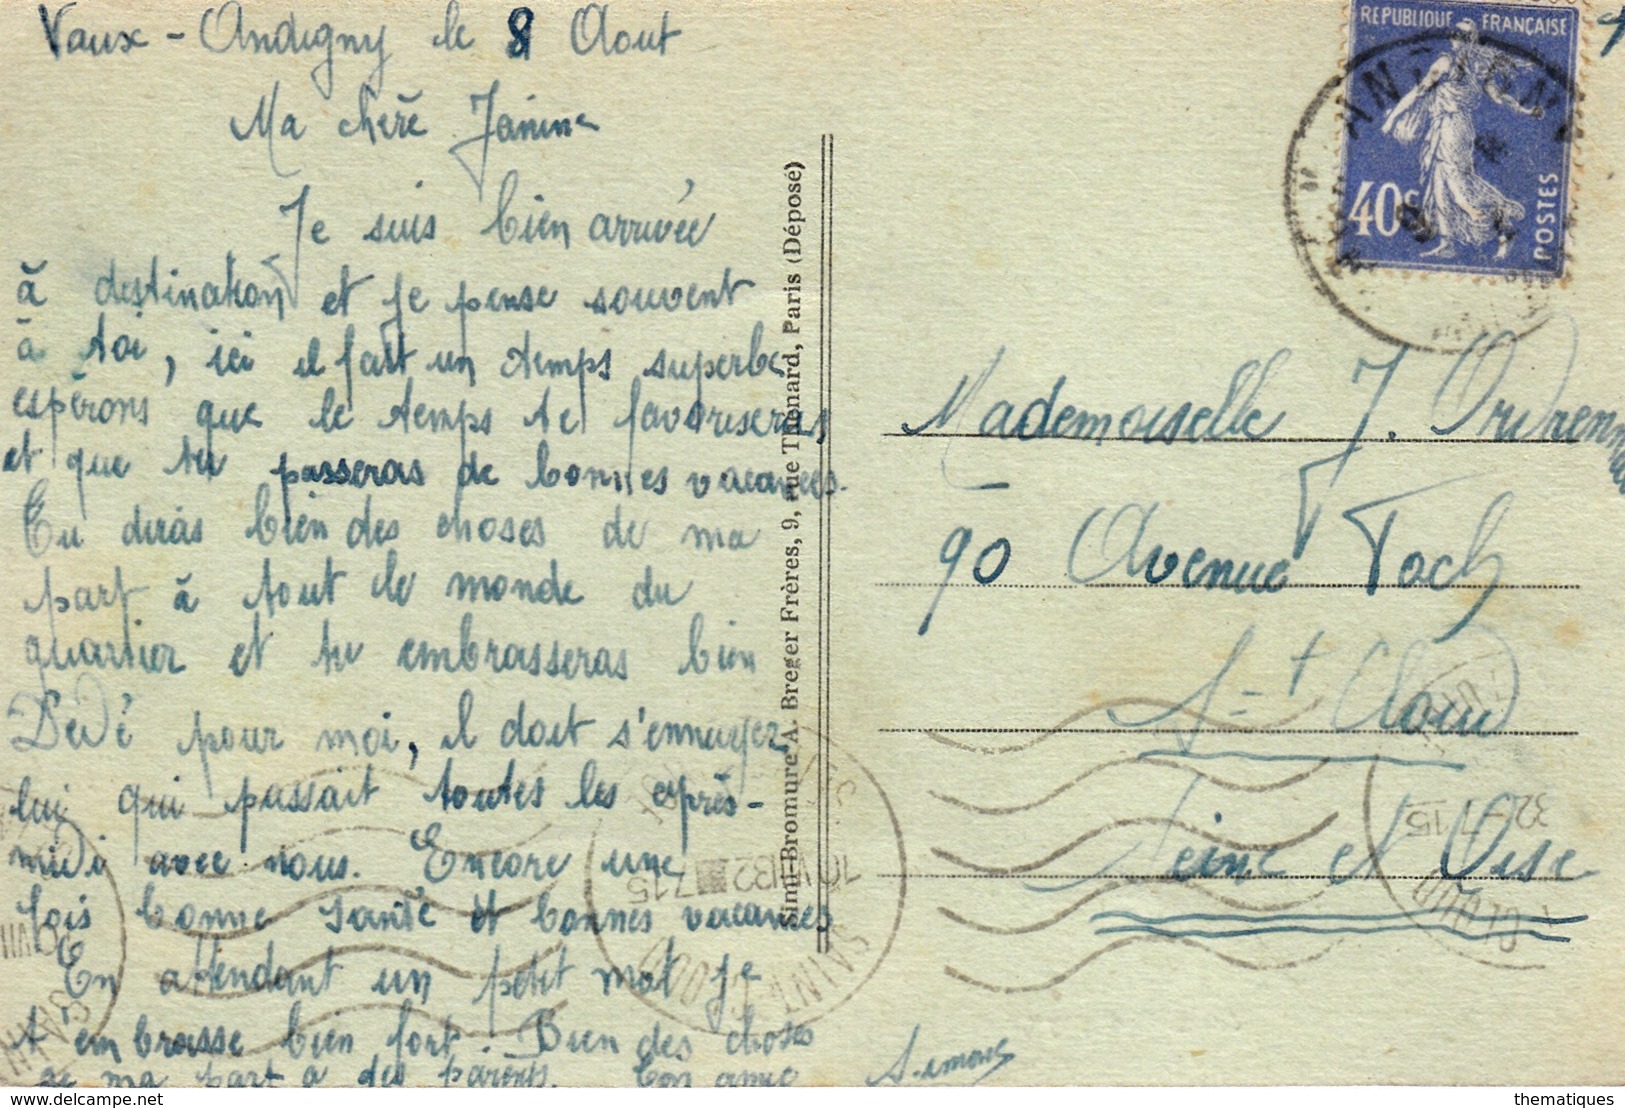 Vaux-Andigny le 8 Aout
Ma chère Janine
Je suis bien arrivée
à destination et je pense souvent
à toi, ici il fait un temps superbe
espèrons que le temps te favoriseras
et que tu passeras de bonnes vacances.
Tu diras bien des choses de ma
part à tout le monde du
quartier et tu embrasseras bien
Dédé pour moi, il doit s'ennuyer
lui qui passait toutes les après-
midi avec nous. Encore une
fois bonne santé et bonnes vacances
En attendant un petit mot je
t'embrasse bien fort. Bien des choses
de ma part à des parents. Ton amie
Simone
Simi-Bromure A. Breger Frères, 9, rue Thénard, Paris (Déposé)
REPUBLIQUE FRANÇAISE
40c
POSTES
ANDIGNY
Mademoiselle J.
90 Avenue Foch
S-t Cloud
Seine et Oise
SAINT-CLOUD
7 15
32
7 15
thematiques